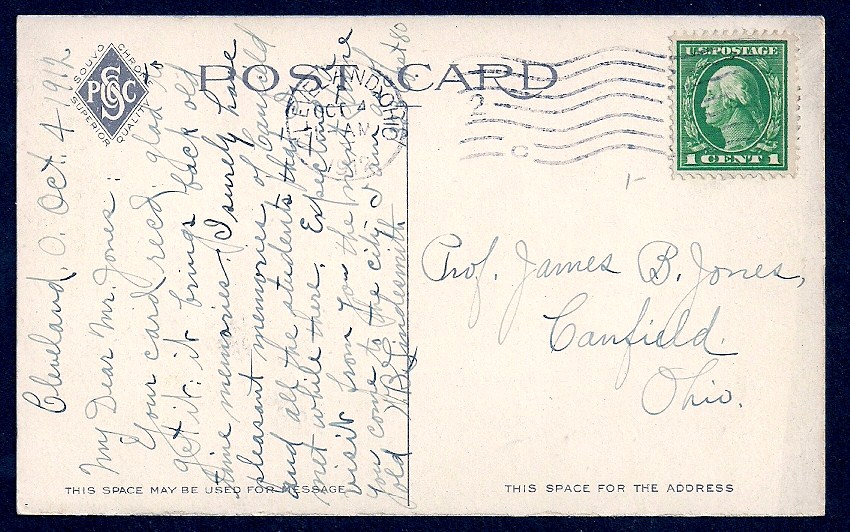 SOUVO CHROM
P S G C
SUPERIOR QUALITY
POST CARD
CLEVELAND, OHIO
OCT 4
AM
2
U.S. POSTAGE
1 CENT 1
Cleveland, O. Oct. 4 - 1912
My Dear Mr. Jones:
Your card recd. glad to
get it: it brings back old
time memories. I surely have
pleasant memories of Canfield
and all the students that I
met while there. Expecting a
visit from you the next time
you come to the city. I am
old
W B Lindesmith
Prof. James B. Jones,
Canfield.
Ohio.
THIS SPACE MAY BE USED FOR MESSAGE
THIS SPACE FOR THE ADDRESS